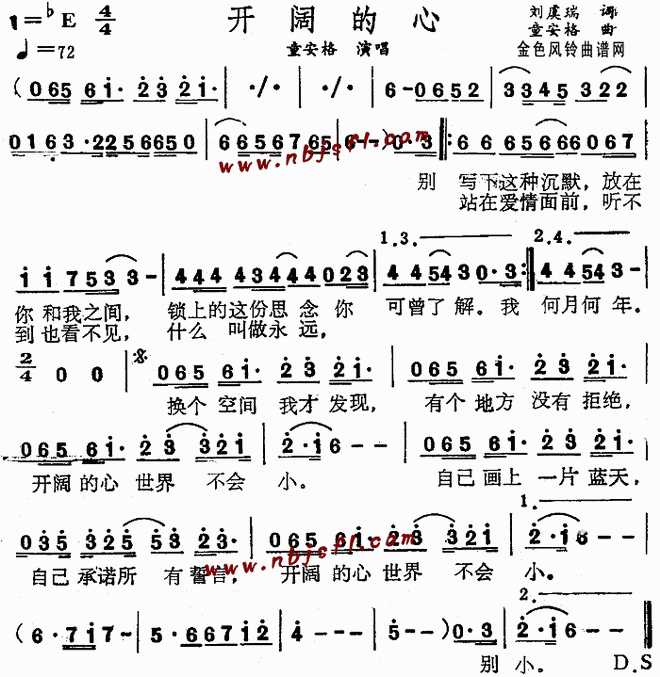 1=♭E 4/4 开阔的心 刘虞瑞 词
♩=72 童安格 演唱 童安格 曲
金色风铃曲谱网
(065 61· 23 21· | ·/· | ·/· | 6-0652 | 3345 322 |
0163·2256650 | 6656765 | 6--)0·3 ‖: 6665666067 |
www.nbjsfl.com
别 写下这种沉默，放在
站在爱情面前，听不
1.3. 2.4.
1 1 7533- | 444 43444023 | 4 4543 0·3 :‖ 4 4543- |
你和我之间， 锁上的这份思念你 可曾了解。我 何月何年。
到也看不见， 什么 叫做永远，
2/4 0 0 | 065 61· 23 21· | 065 61· 23 21· |
换个 空间 我才发现， 有个 地方 没有拒绝，
065 61· 23 321 | 2·16-- | 065 61· 23 21· |
开阔的心 世界 不会 小。 自己画上 一片蓝天，
1.
035 325 53 23· | 065 61· 23 321 | 2·16-- |
www.nbjsfl.com
自己 承诺所 有誓言， 开阔的心世界 不会 小。
2.
(6·717- | 5·66712 | 4--- | 5--)0·3 | 2·16-- ‖
别 小。 D.S